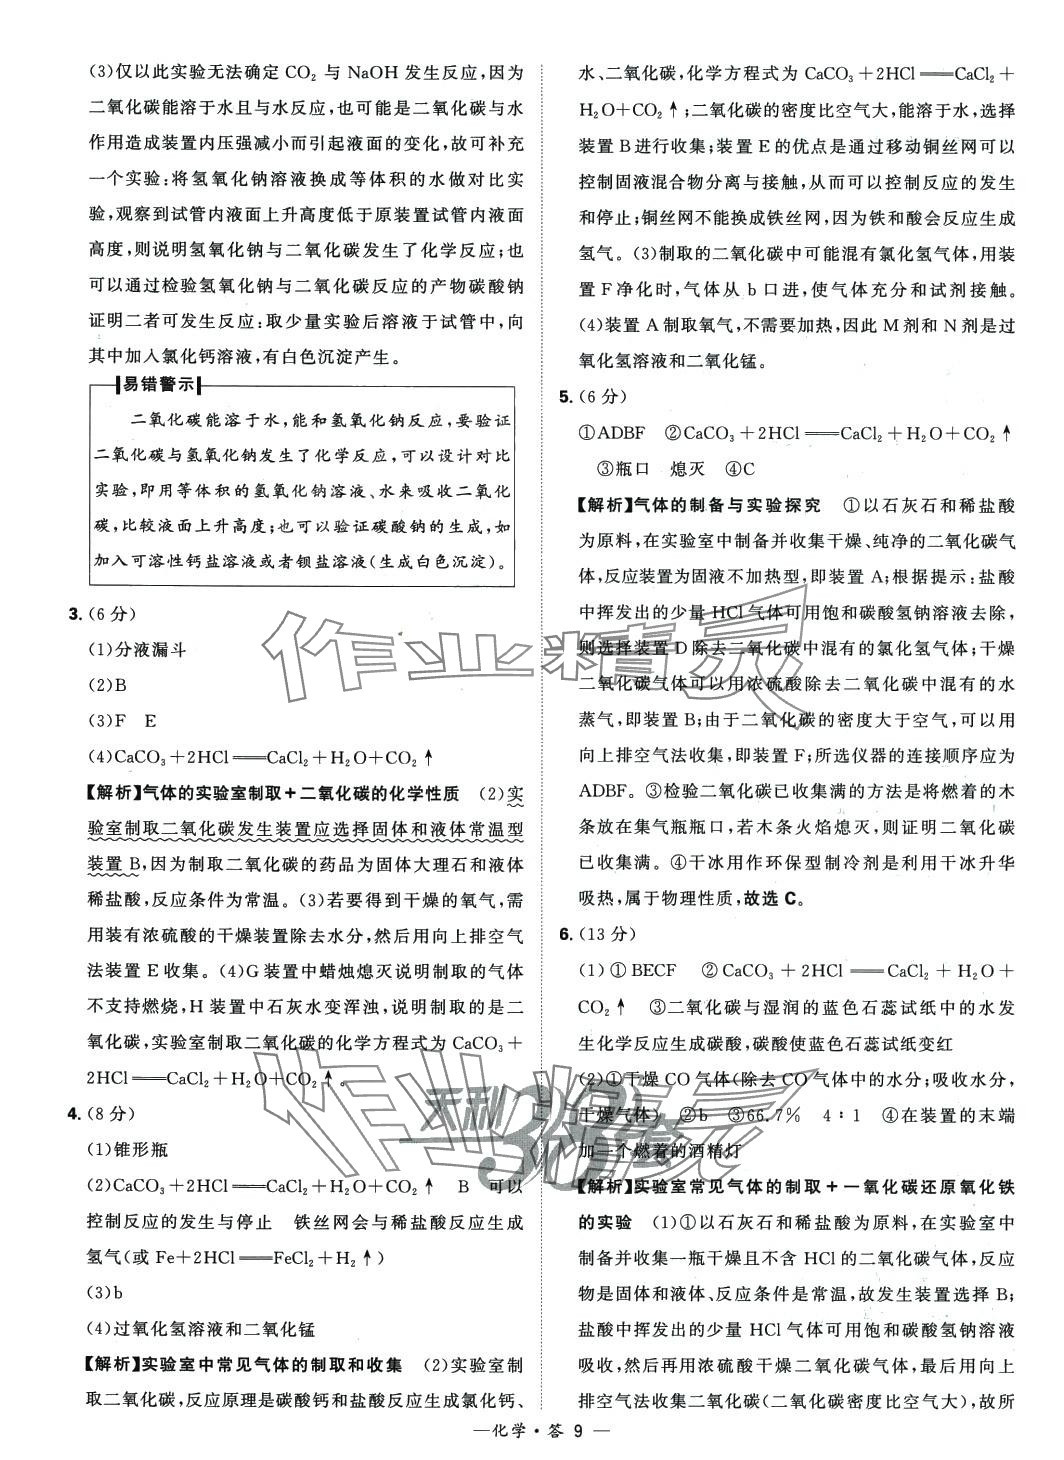 (3)仅以此实验无法确定 CO₂ 与 NaOH 发生反应,因为
二氧化碳能溶于水且与水反应,也可能是二氧化碳与水
作用造成装置内压强减小而引起液面的变化,故可补充
一个实验:将氢氧化钠溶液换成等体积的水做对比实
验,观察到试管内液面上升高度低于原装置试管内液面
高度,则说明氢氧化钠与二氧化碳发生了化学反应;也
可以通过检验氢氧化钠与二氧化碳反应的产物碳酸钠
证明二者可发生反应:取少量实验后溶液于试管中,向
其中加入氯化钙溶液,有白色沉淀产生。
易错警示
二氧化碳能溶于水,能和氢氧化钠反应,要验证
二氧化碳与氢氧化钠发生了化学反应,可以设计对比
实验,即用等体积的氢氧化钠溶液、水来吸收二氧化
碳,比较液面上升高度;也可以验证碳酸钠的生成,如
加入可溶性钙盐溶液或者钡盐溶液(生成白色沉淀)。
3.(6 分)
(1)分液漏斗
(2)B
(3)F E
(4)CaCO₃+2HCl══CaCl₂+H₂O+CO₂↑
【解析】气体的实验室制取+二氧化碳的化学性质 (2)实
验室制取二氧化碳发生装置应选择固体和液体常温型
装置 B,因为制取二氧化碳的药品为固体大理石和液体
稀盐酸,反应条件为常温。(3)若要得到干燥的氧气,需
用装有浓硫酸的干燥装置除去水分,然后用向上排空气
法装置 E 收集。(4)G 装置中蜡烛熄灭说明制取的气体
不支持燃烧,H 装置中石灰水变浑浊,说明制取的是二
氧化碳,实验室制取二氧化碳的化学方程式为 CaCO₃+
2HCl══CaCl₂+H₂O+CO₂↑。
4.(8 分)
(1)锥形瓶
(2)CaCO₃+2HCl══CaCl₂+H₂O+CO₂↑ B 可以
控制反应的发生与停止 铁丝网会与稀盐酸反应生成
氢气(或 Fe+2HCl══FeCl₂+H₂↑)
(3)b
(4)过氧化氢溶液和二氧化锰
【解析】实验室中常见气体的制取和收集 (2)实验室制
取二氧化碳,反应原理是碳酸钙和盐酸反应生成氯化钙、
水、二氧化碳,化学方程式为 CaCO₃+2HCl══CaCl₂+
H₂O+CO₂↑;二氧化碳的密度比空气大,能溶于水,选择
装置 B 进行收集;装置 E 的优点是通过移动铜丝网可以
控制固液混合物分离与接触,从而可以控制反应的发生
和停止;铜丝网不能换成铁丝网,因为铁和酸会反应生成
氢气。(3)制取的二氧化碳中可能混有氯化氢气体,用装
置 F 净化时,气体从 b 口进,使气体充分和试剂接触。
(4)装置 A 制取氧气,不需要加热,因此 M 剂和 N 剂是过
氧化氢溶液和二氧化锰。
5.(6 分)
①ADBF ②CaCO₃+2HCl══CaCl₂+H₂O+CO₂↑
③瓶口 熄灭 ④C
【解析】气体的制备与实验探究 ①以石灰石和稀盐酸
为原料,在实验室中制备并收集干燥、纯净的二氧化碳气
体,反应装置为固液不加热型,即装置 A;根据提示:盐酸
中挥发出的少量 HCl 气体可用饱和碳酸氢钠溶液去除,
则选择装置 D 除去二氧化碳中混有的氯化氢气体;干燥
二氧化碳气体可以用浓硫酸除去二氧化碳中混有的水
蒸气,即装置 B;由于二氧化碳的密度大于空气,可以用
向上排空气法收集,即装置 F;所选仪器的连接顺序应为
ADBF。③检验二氧化碳已收集满的方法是将燃着的木
条放在集气瓶瓶口,若木条火焰熄灭,则证明二氧化碳
已收集满。④干冰用作环保型制冷剂是利用干冰升华
吸热,属于物理性质,故选 C。
6.(13 分)
(1)①BECF ②CaCO₃+2HCl══CaCl₂+H₂O+
CO₂↑ ③二氧化碳与湿润的蓝色石蕊试纸中的水发
生化学反应生成碳酸,碳酸使蓝色石蕊试纸变红
(2)①干燥 CO 气体(除去 CO 气体中的水分;吸收水分,
干燥气体) ②b ③66.7% 4∶1 ④在装置的末端
加一个燃着的酒精灯
【解析】实验室常见气体的制取+一氧化碳还原氧化铁
的实验 (1)①以石灰石和稀盐酸为原料,在实验室中
制备并收集一瓶干燥且不含 HCl 的二氧化碳气体,反应
物是固体和液体、反应条件是常温,故发生装置选择 B;
盐酸中挥发出的少量 HCl 气体可用饱和碳酸氢钠溶液
吸收,然后再用浓硫酸干燥二氧化碳气体,最后用向上
排空气法收集二氧化碳(二氧化碳密度比空气大),故所
—化学·答 9—
作业精灵
作业精灵
天利38套